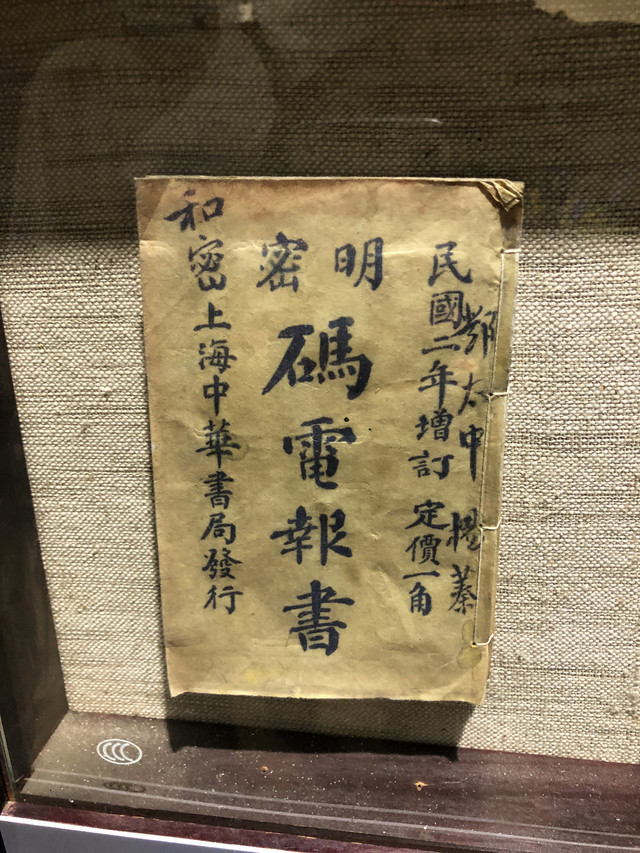 鄂太中
民國二年增訂 定價一角
明密
碼電報書
和密上海中華書局發行
CCC